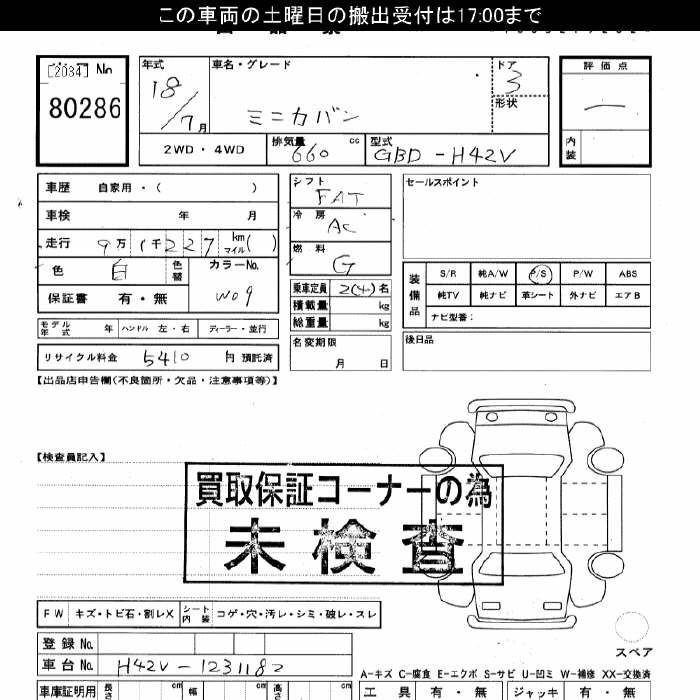 この車両の土曜日の搬出受付は17:00まで
[2034] No
80286
年式
18/7月
車名・グレード
ミニカバン
ドア
3
形状
評価点
内装
2WD・4WD
排気量 660 cc
型式 GBD-H42V
車歴 自家用・( )
車検 年 月
走行 9万1千227 km マイル( )
色 白 色替
カラーNo. W09
保証書 有・無
モデル年式 年 ハンドル 左・右 ディーラー・並行
リサイクル料金 5410 円 預託済
シフト FAT
冷房 AC
燃料 G
乗車定員 2(4)名
積載量 kg
総重量 kg
名変期限
月 日
セールスポイント
装備品
S/R 純A/W P/S P/W ABS
純TV 純ナビ 革シート 外ナビ エアB
ナビ型番:
後日品
【出品店申告欄(不良箇所・欠品・注意事項等)】
【検査員記入】
買取保証コーナーの為
未検査
FW キズ・トビ石・割レX シート内装 コゲ・穴・汚レ・シミ・破レ・スレ
登録No.
車台No. H42V-1231182
スペア
A-キズ C-腐食 E-エクボ S-サビ U-凹ミ W-補修 XX-交換済
車庫証明用 長さ cm 幅 cm 高さ cm
工具 有・無 ジャッキ 有・無